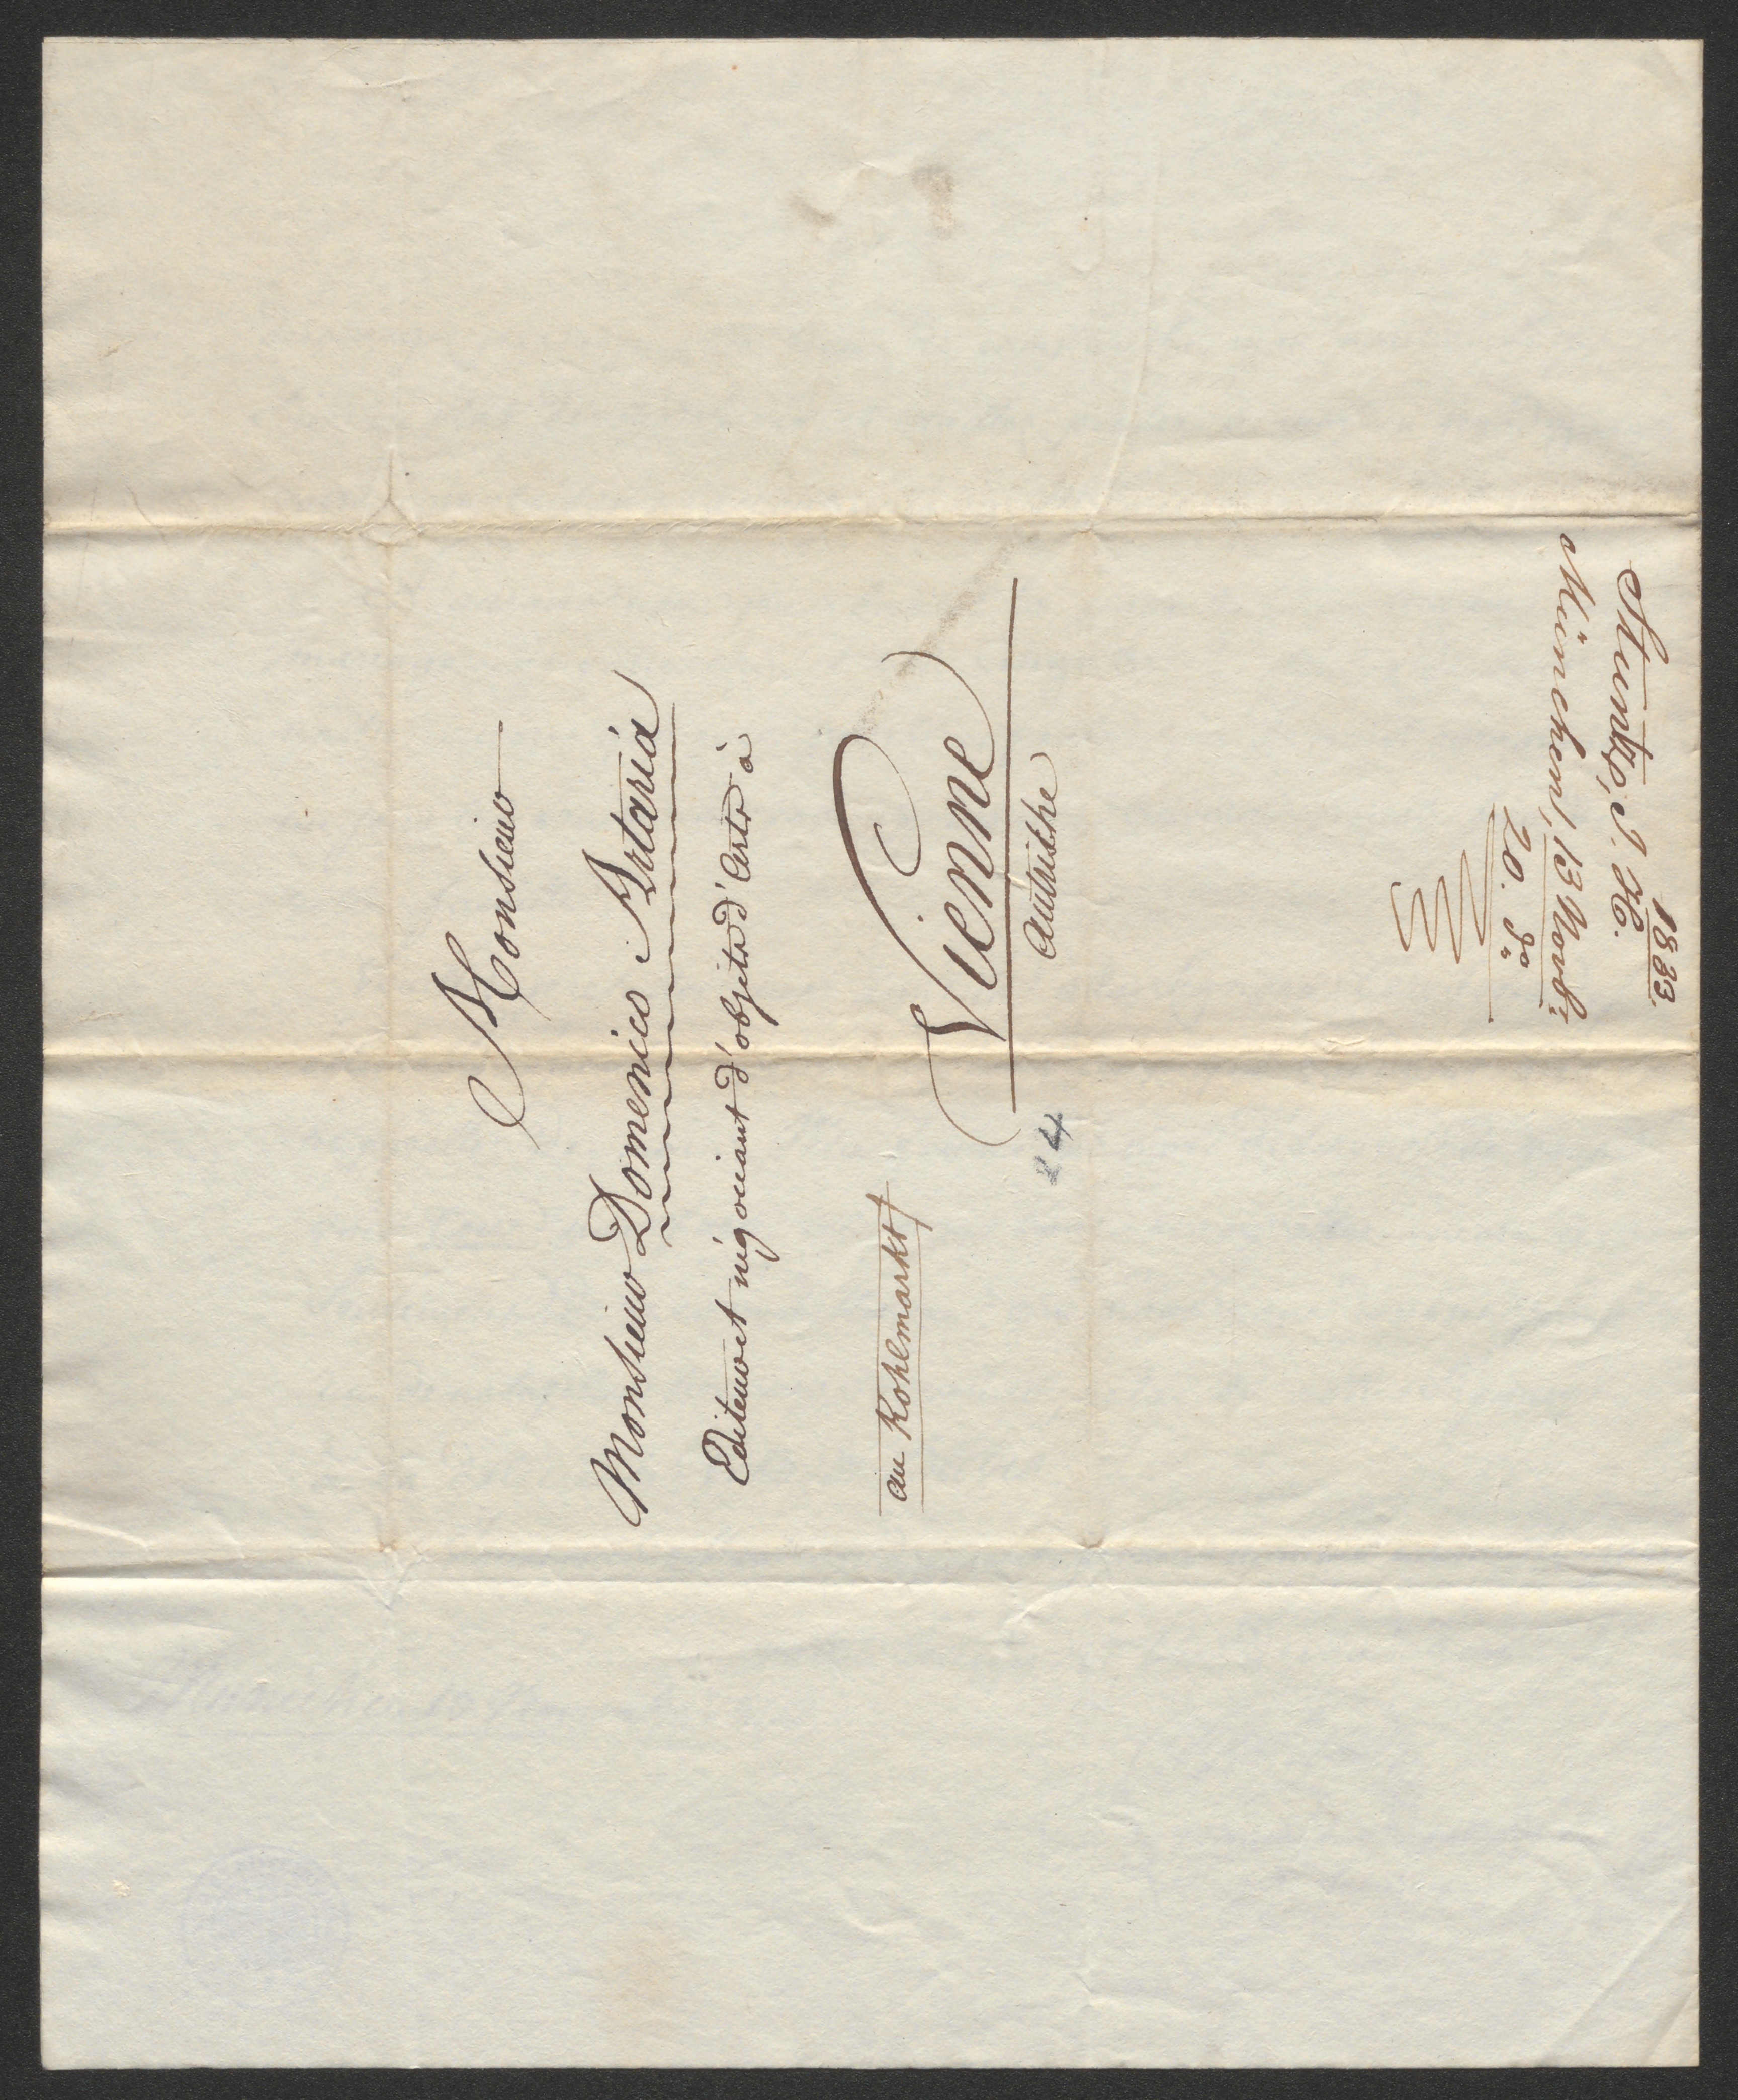 Monsieur
Monsieur Domenico Artaria
Editeur et négociant d'objets d'Arts à
Vienne
Autriche
au Kohlmarkt
24
1833.
Stuntz, J. H.
München, 13 Novbr
20. do